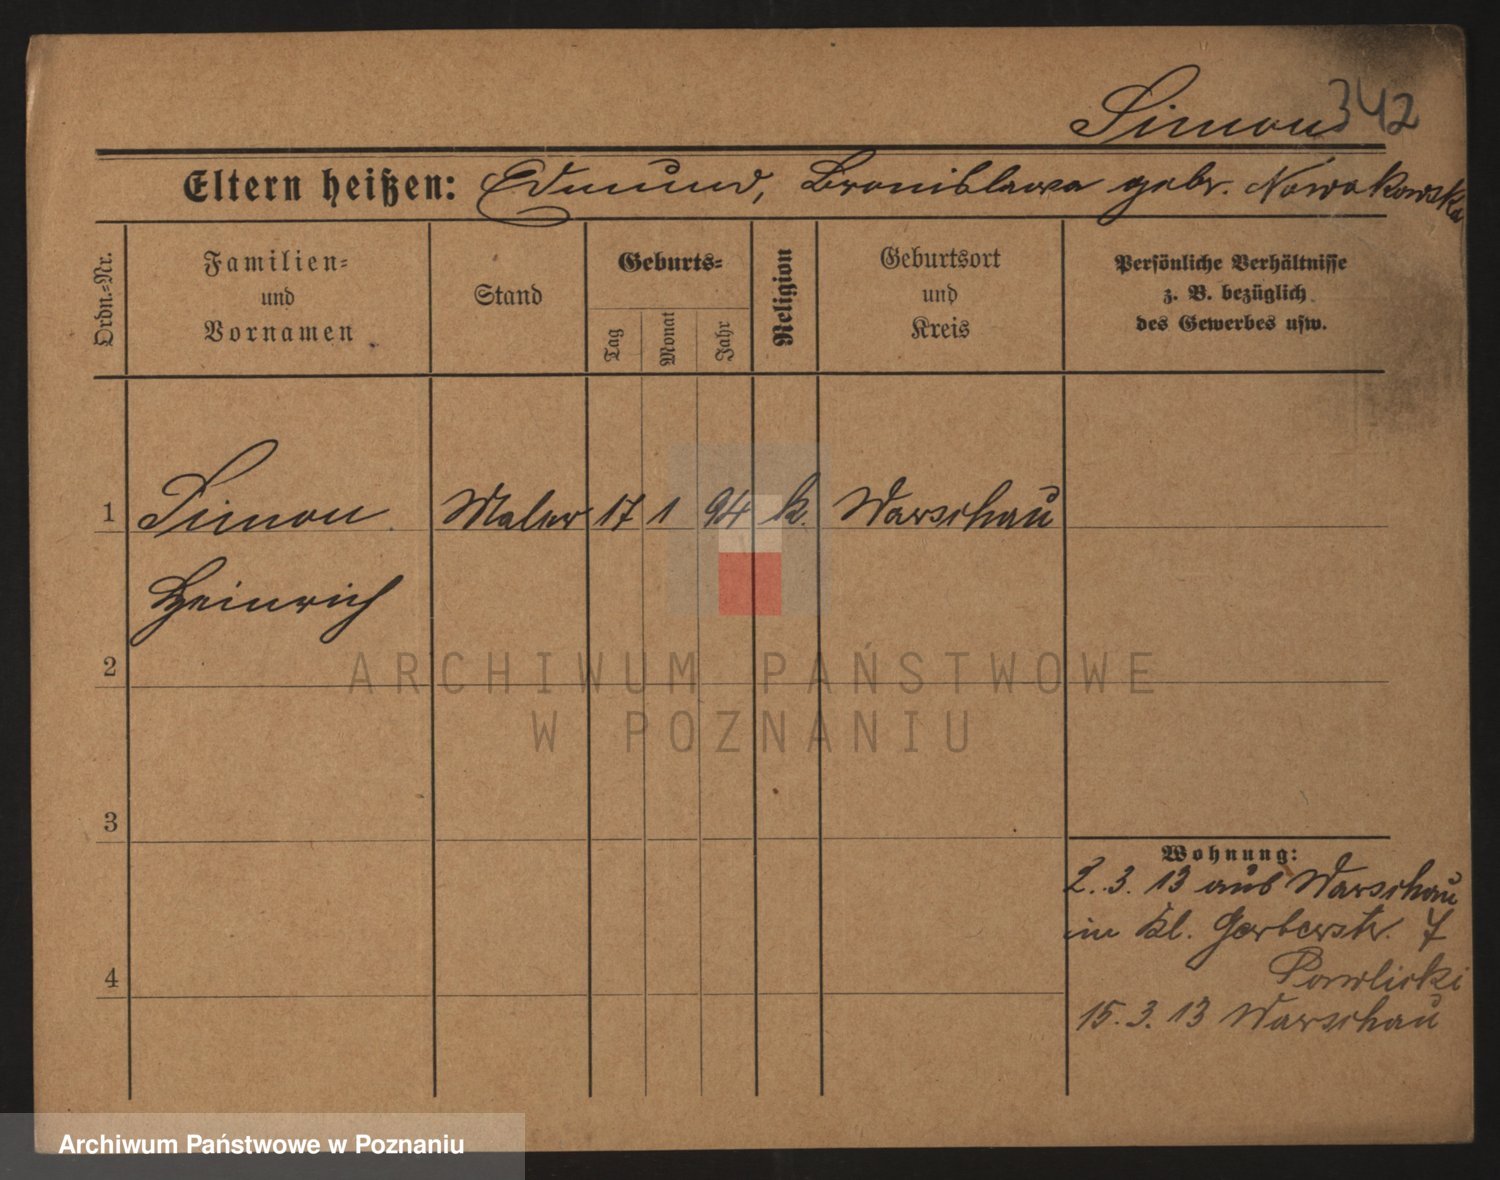 Simon 342
Eltern heißen: Edmund, Bronislawa gebr. Nowakowska
Ordn.-Nr.
Familien-
und
Vornamen
Stand
Geburts-
Tag
Monat
Jahr
Religion
Geburtsort
und
Kreis
Persönliche Verhältnisse
z. B. bezüglich
des Gewerbes usw.
1 Simon Maler 17 1 94 k. Warschau
Heinrich
2
3
Wohnung:
2. 3. 13 aus Warschau
in Kl. Gerberstr. 7
Pawlicki
4
15. 3. 13 Warschau
ARCHIWUM PAŃSTWOWE
W POZNANIU
Archiwum Państwowe w Poznaniu